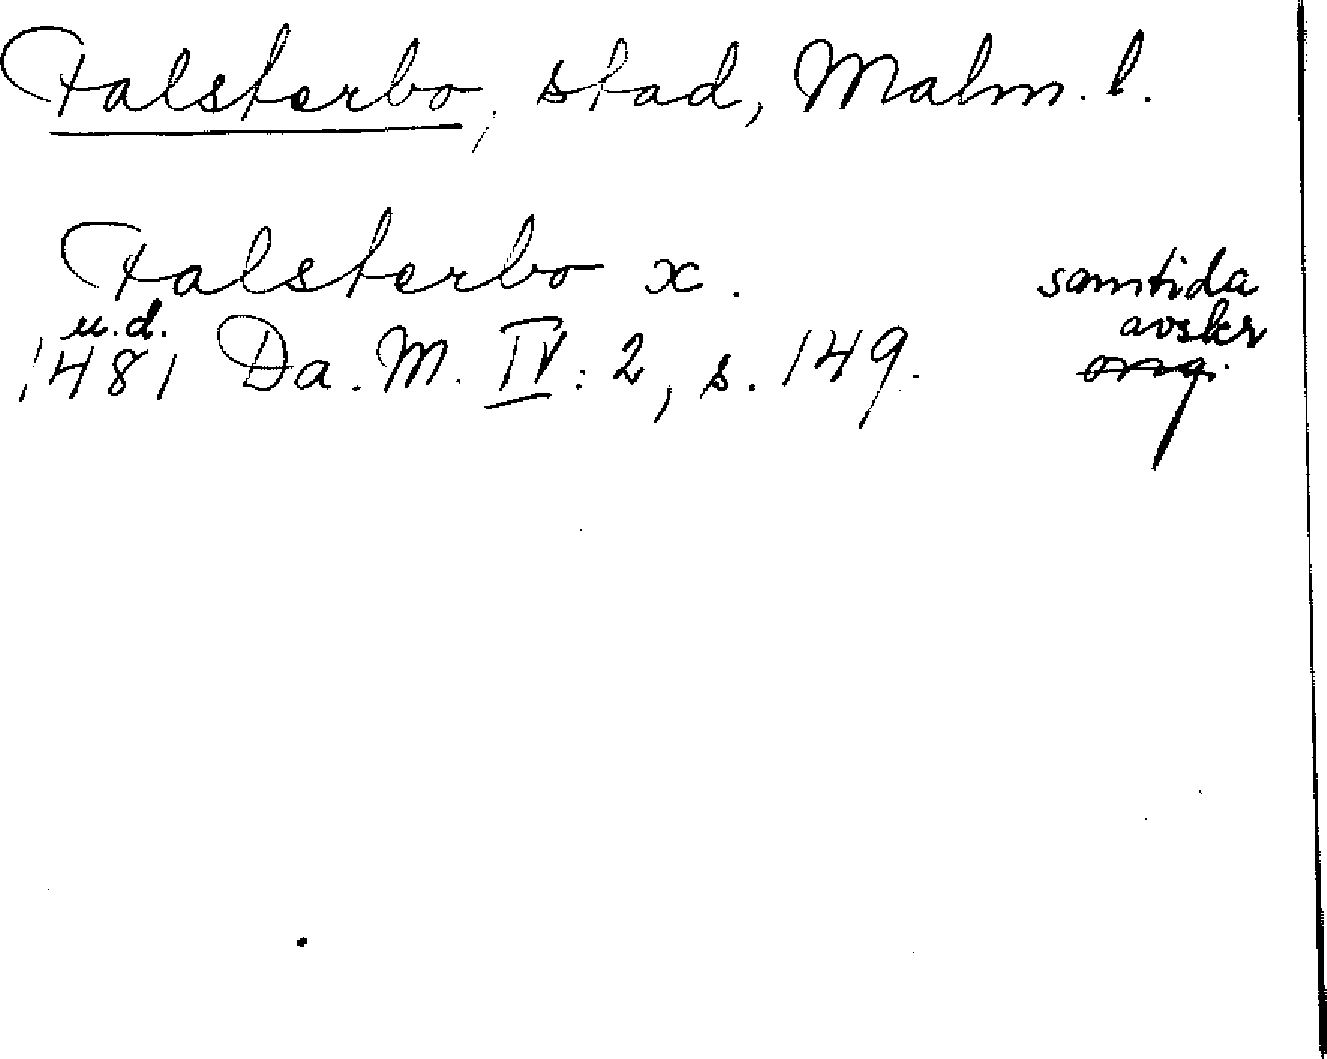 Falsterbo, stad, Malm. l.
Falsterbo x.
samtida
u.d.
avskr
1481 Da. M. IV: 2, s. 149.
orig.